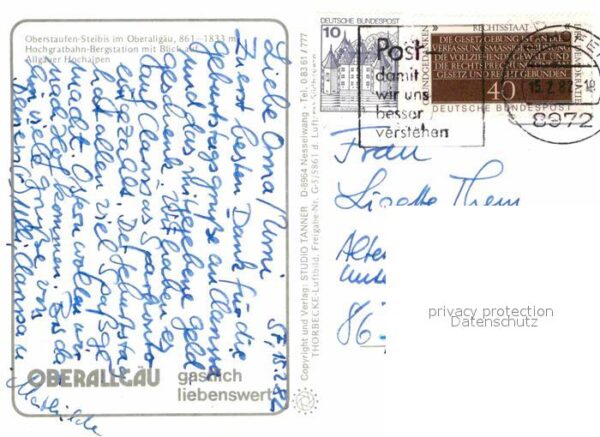 Oberstaufen-Steibis im Oberallgäu, 861–1833 m
Hochgratbahn-Bergstation mit Blick auf
Allgäuer Hochalpen
St., 15.2.82
Liebe Oma/Mimi
Zuerst besten Dank für die
Geburtstagsgrüße an Clarissa
und das mitgegebene Geld
Wir haben es
auf Clarissas Sparbuch
einbezahlt. Der Geburtstag
hat allen viel Spaß ge-
macht. Ostern wollen wir
kommen. Bis da-
hin viele Grüße von
Deinen
Willi, Clarissa u.
Mathilde
OBERALLGÄU
gastlich
liebenswert
Copyright und Verlag: STUDIO TANNER D-8964 Nesselwang - Tel. 0 83 61 / 777
THORBECKE-Luftbild, Freigabe-Nr. G-5/5861 d. Luftamt Südbayern
DEUTSCHE BUNDESPOST
10
RECHTSSTAAT
DIE GESETZGEBUNG IST AN DIE
VERFASSUNGSMÄSSIGE ORDNUNG
DIE VOLLZIEHENDE GEWALT UND
DIE RECHTSPRECHUNG SIND AN
GESETZ UND RECHT GEBUNDEN
40
DEUTSCHE BUNDESPOST
Post
damit
wir uns
besser
verstehen
15.2.82
8972
Frau
Lisette
Alten
86
privacy protection
Datenschutz